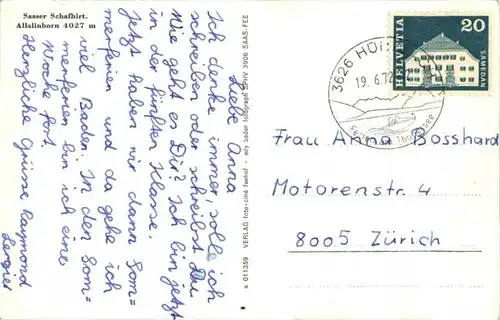 Saaser Schafhirt.
Allalinhorn 4027 m
Liebe Anna
Ich denke immer, solle ich
schreiben oder schreibst Du.
Wie geht es Dir? Ich bin jetzt
in der fünften Klasse.
Jetzt haben wir dann Som=
merferien und da gehe ich
viel Baden. In den Som=
merferien bin ich eine
Woche fort.
Herzliche Grüsse Raymond
a 011359 VERLAG foto-ciné feehof - edy bader fotograf SPHV 3906 SAAS-FEE
3626 HÜ
19.6.72
HELVETIA
20
SAMEDAN
Frau Anna Bosshard
Motorenstr. 4
8005 Zürich